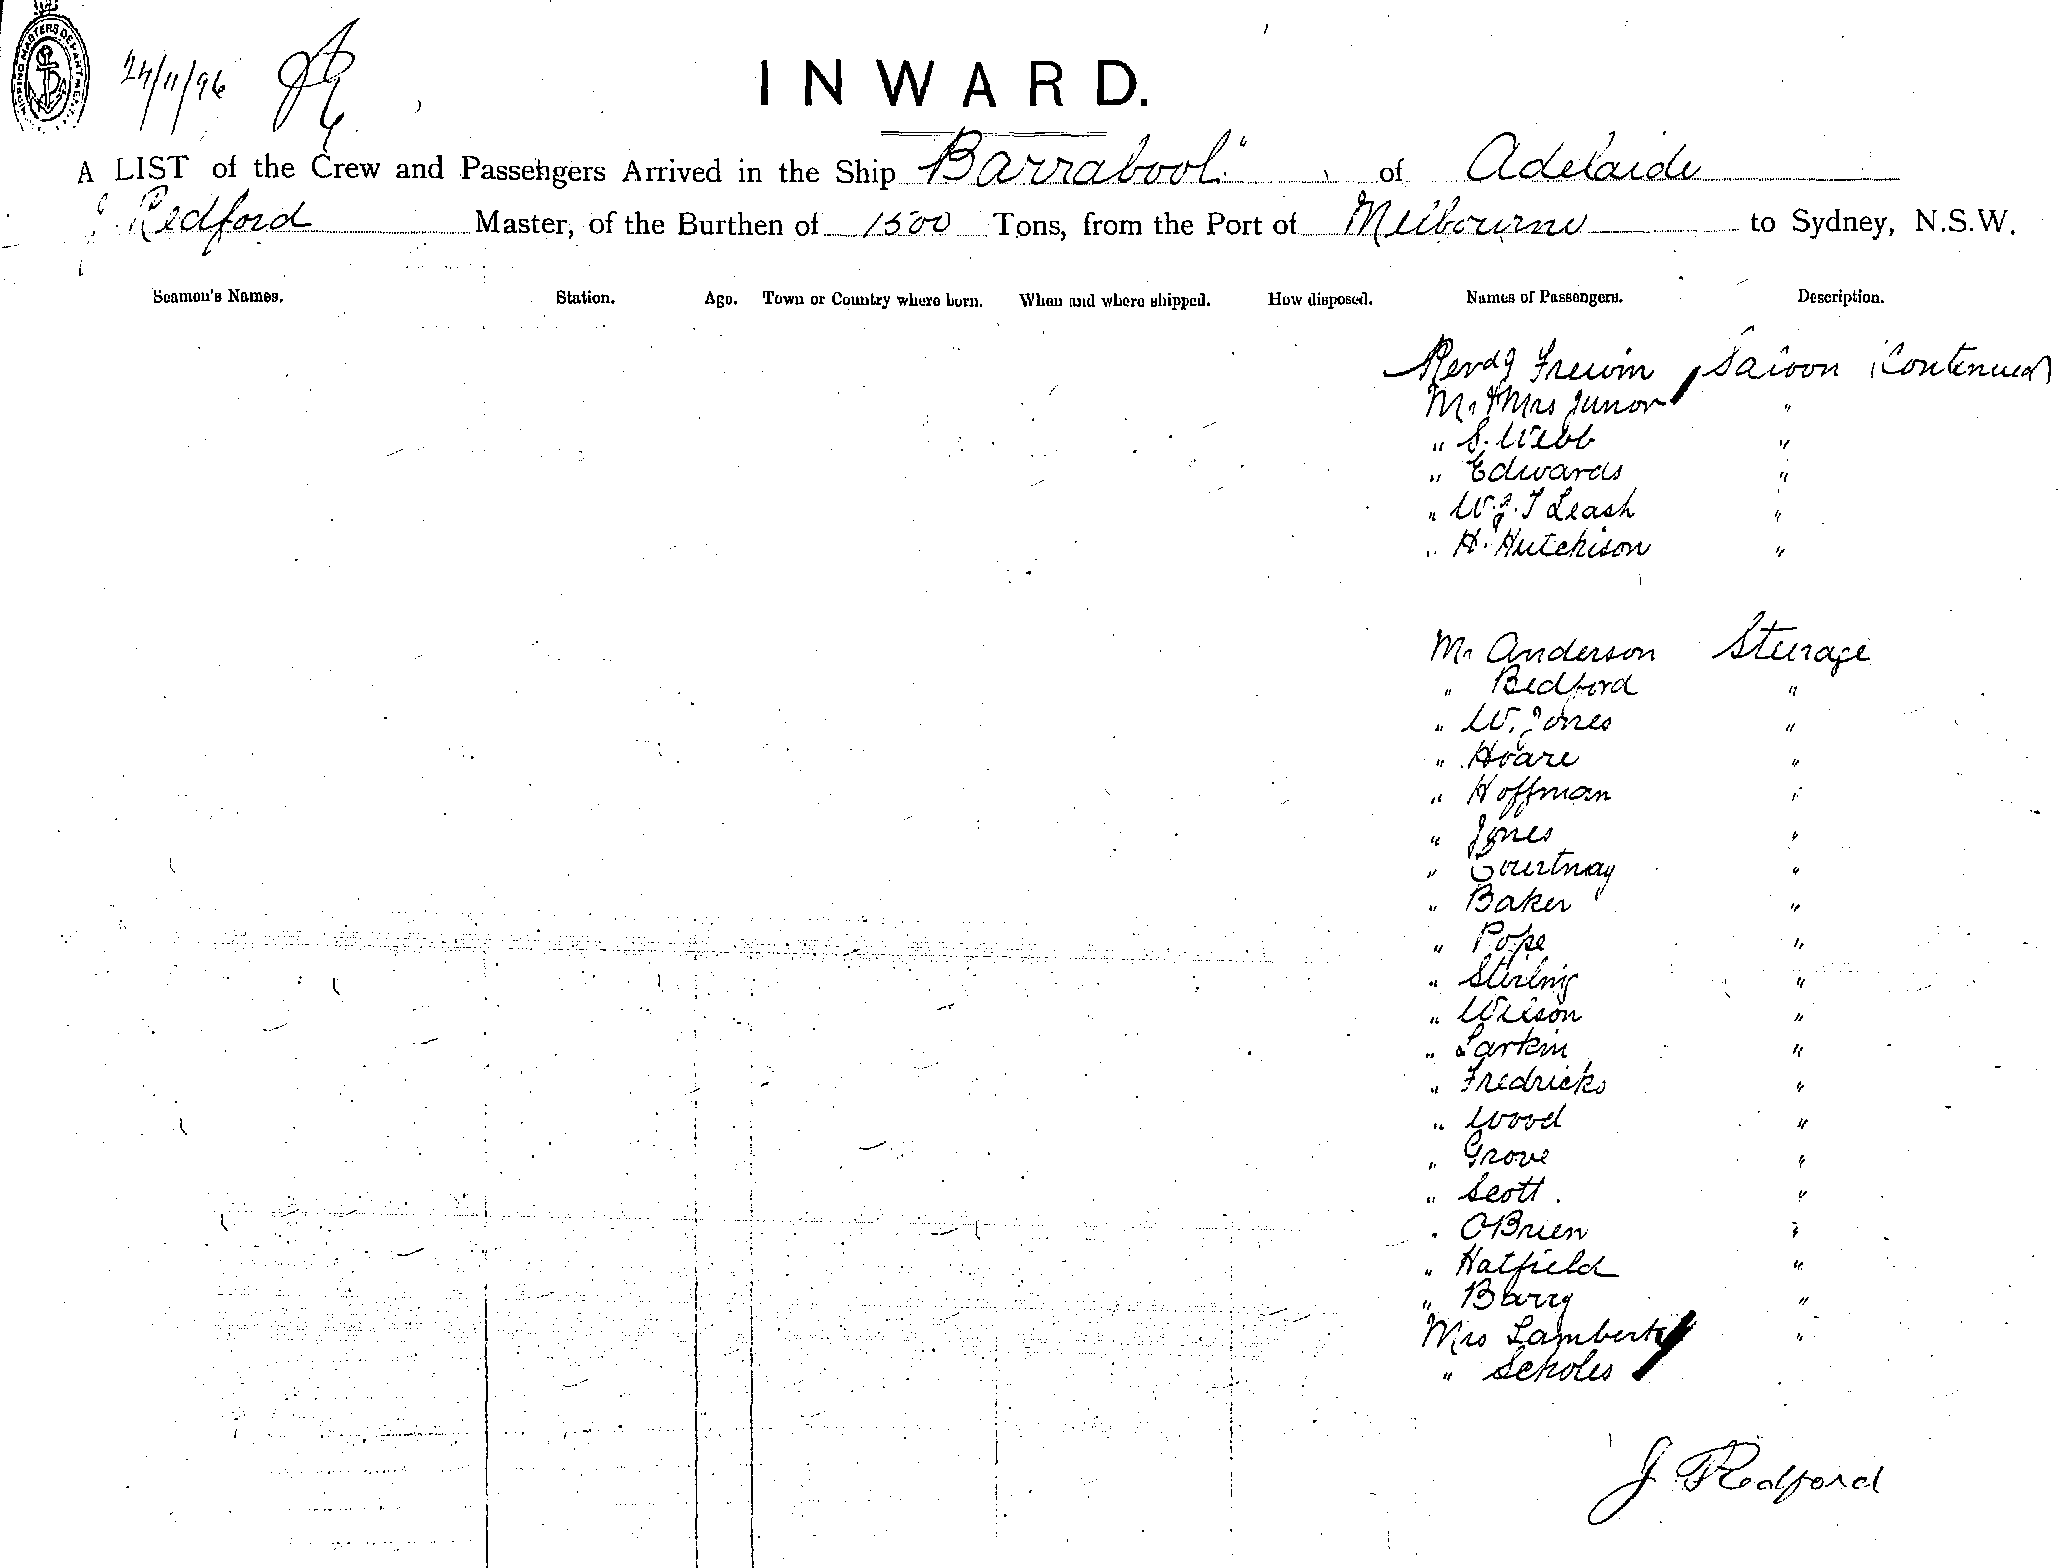 SHIPPING MASTERS DEPARTMENT
24/11/96
INWARD.
A LIST of the Crew and Passengers Arrived in the Ship "Barrabool" of Adelaide
J Redford Master, of the Burthen of 1500 Tons, from the Port of Melbourne to Sydney, N.S.W.
Seamen's Names. Station. Age. Town or Country where born. When and where shipped. How disposed. Names of Passengers. Description.
Revd J Frewin Saloon (Continued)
Mr & Mrs Junor "
" S. Webb "
" Edwards "
" W. J. T Leash "
" H. Hutchison "
Mr Anderson Steerage
" Bedford "
" W. Jones "
" Hoare "
" Hoffman "
" Jones "
" Courtnay "
" Baker "
" Pope "
" Stirling "
" Wilson "
" Larkin "
" Fredricks "
" Wood "
" Grove "
" Scott. "
" OBrien "
" Hatfield "
" Barry "
Mrs Lambert "
" Scholes
J Redford